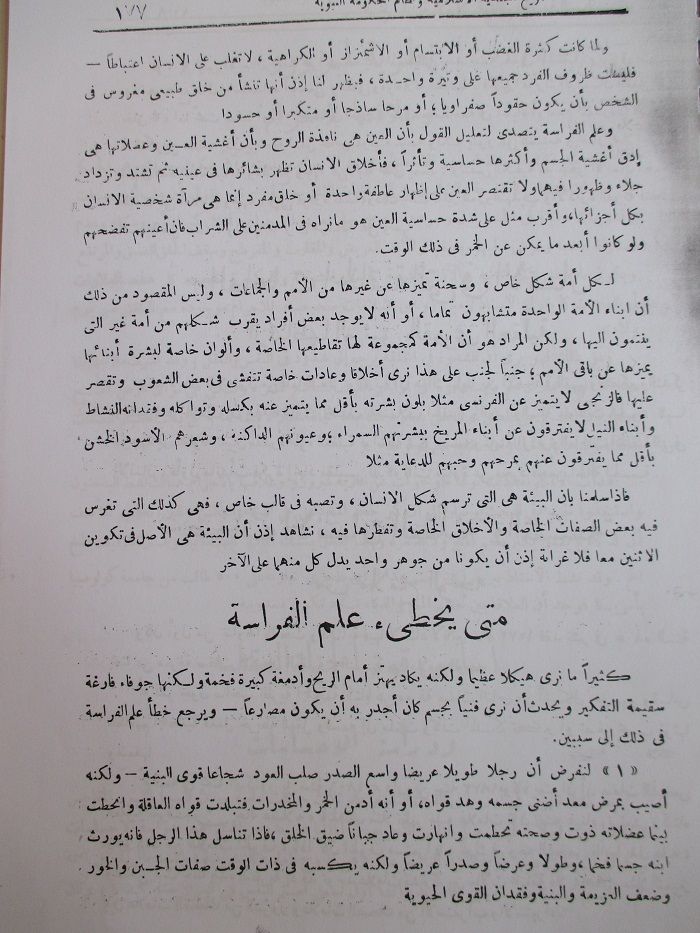 ١٧٧
ولما كانت كثرة الغضب أو الابتسام أو الاشمئزاز أو الكراهية ، لا تغلب على الانسان اعتباطاً —
فليست ظروف الفرد جميعها على وتيرة واحدة ، فيظهر لنا إذن أنها تنشأ من خلق طبيعى مغروس فى
الشخص بأن يكون حقوداً صفراويا ؛ أو مرحا ساذجا أو متكبرا أو حسودا
وعلم الفراسة يتصدى لتعليل القول بأن العين هى نافذة الروح وبأن أغشية العين وعضلاتها هى
إدق أغشية الجسم وأكثرها حساسية وتأثراً ، فأخلاق الانسان تظهر بشائرها فى عينيه ثم تشتد وتزداد
جلاء وظهورا فيهما ولا تقتصر العين على إظهار عاطفة واحدة أو خلق مفرد إنما هى مرآة شخصية الانسان
بكل أجزائها، وأقرب مثل على شدة حساسية العين هو مانراه فى المدمنين على الشراب فان أعينهم تفضحهم
ولو كانوا أبعد ما يمكن عن الخمر فى ذلك الوقت.
لكل أمة شكل خاص ، وسحنة تميزها عن غيرها من الأمم والجماعات ، وليس المقصود من ذلك
أن ابناء الأمة الواحدة متشابهون تماما ، أو أنه لا يوجد بعض أفراد يقرب شكلهم من أمة غير التى
ينتمون اليها ، ولكن المراد هو أن الأمة كمجموعة لها تقاطيعها الخاصة ، وألوان خاصة لبشرة أبنائها
يميزها عن باقى الأمم ؛ جنباً لجنب على هذا نرى أخلاقا وعادات خاصة تتفشى فى بعض الشعوب وتقصر
عليها فالزنجى لا يتميز عن الفرنسى مثلا بلون بشرته بأقل مما يتميز عنه بكسله وتواكله وفقدانه النشاط
وأبناء النيل لا يفترقون عن أبناء المريخ ببشرتهم السمراء ؛ وعيونهم الداكنة ، وشعرهم الأسود الخشن
بأقل مما يفترقون عنهم بمرحهم وحبهم للدعاية مثلا
فاذا سلمنا بان البيئة هى التى ترسم شكل الانسان ، وتصبه فى قالب خاص ، فهى كذلك التى تغرس
فيه بعض الصفات الخاصة والأخلاق الخاصة وتفطرها فيه ، نشاهد إذن أن البيئة هى الأصل فى تكوين
الاثنين معا فلا غرابة إذن أن يكونا من جوهر واحد يدل كل منهما على الآخر
متى يخطىء علم الفراسة
كثيراً ما نرى هيكلا عظيما ولكنه يكاد يهتز أمام الريح وأدمغة كبيرة فخمة ولكنها جوفاء فارغة
سقيمة التفكير ويحدث أن نرى فنياً بجسم كان أجدر به أن يكون مصارعاً — ويرجع خطأ علم الفراسة
فى ذلك إلى سببين.
« ١ » لنفرض أن رجلا طويلا عريضا واسع الصدر صلب العود شجاعا قوى البنية — ولكنه
أصيب بمرض معد أضنى جسمه وهد قواه، أو أنه أدمن الخمر والمخدرات فتبلدت قواه العاقلة وانحطت
بينما عضلاته ذوت وصحته تحطمت وانهارت وعاد جباناً ضيق الخلق ، فاذا تناسل هذا الرجل فانه يورث
ابنه جسما فخما ، وطولا وعرضاً وصدراً عريضاً ولكنه يكسبه فى ذات الوقت صفات الجبن والخور
وضعف العزيمة والبنية وفقدان القوى الحيوية